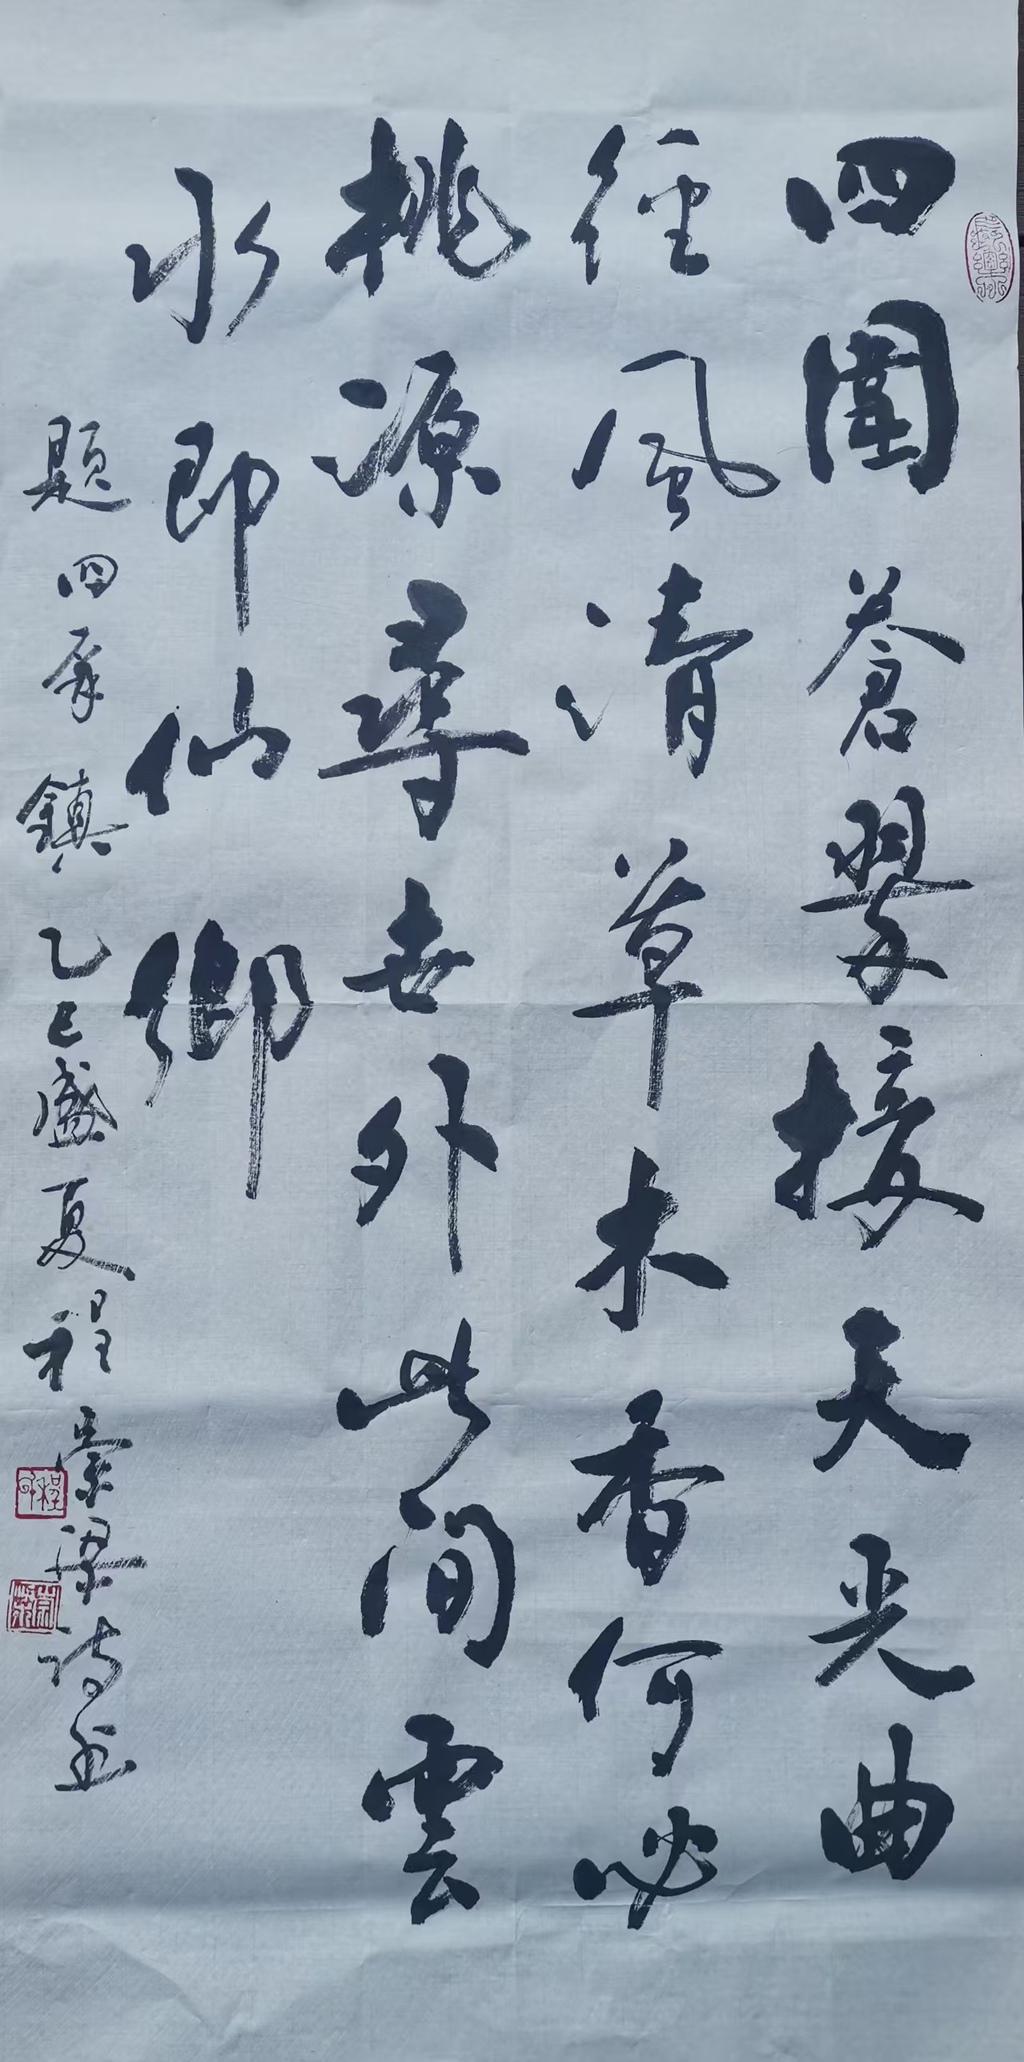 四圍蒼翠接天光曲
徑風清草木香何必
桃源尋世外此間雲
水即仙鄉
題四屏鎮乙巳盛夏程崇梁詩书